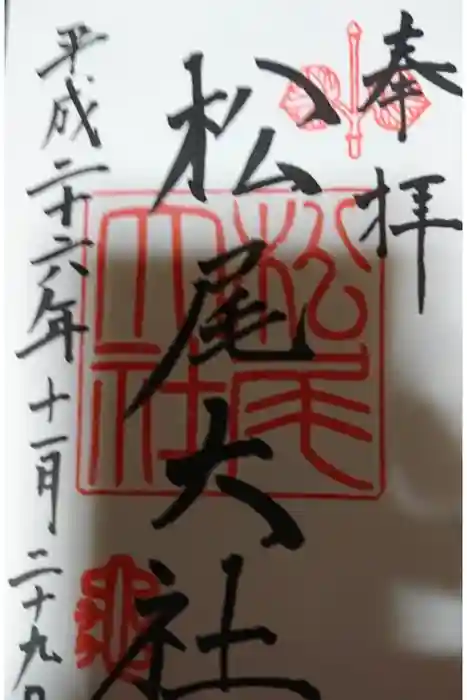 奉拝
松尾大社
平成二十六年十一月二十九日
松尾大社